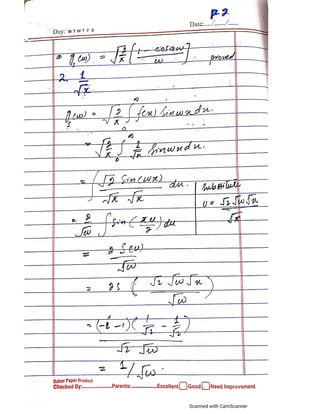 P.2
Date: __/__/__
Day: M T W T F S
g(ω) = √(2/π) [ (1 - cosaω) / ω ] proved
2. 1/√x
g(ω) = √(2/π) ∫₀^∞ f(x) sinωx dx.
= √(2/π) ∫₀^∞ 1/√x sinωx dx.
= ∫ √2 sin(ωx) / √π √x dx. Substitute
u = √2 √ω √x / √π
= 2/√ω ∫ sin(πu/2) du
= 2 S(u) / √ω
= 2S ( √2 √ω √x / √ω )
= (-i-1)( 1/√2 - 1/√2 ) / √2 √ω
= 1/√ω.
Babar Paper Product
Checked By: Parents: Excellent Good Need Improvement
Scanned with CamScanner